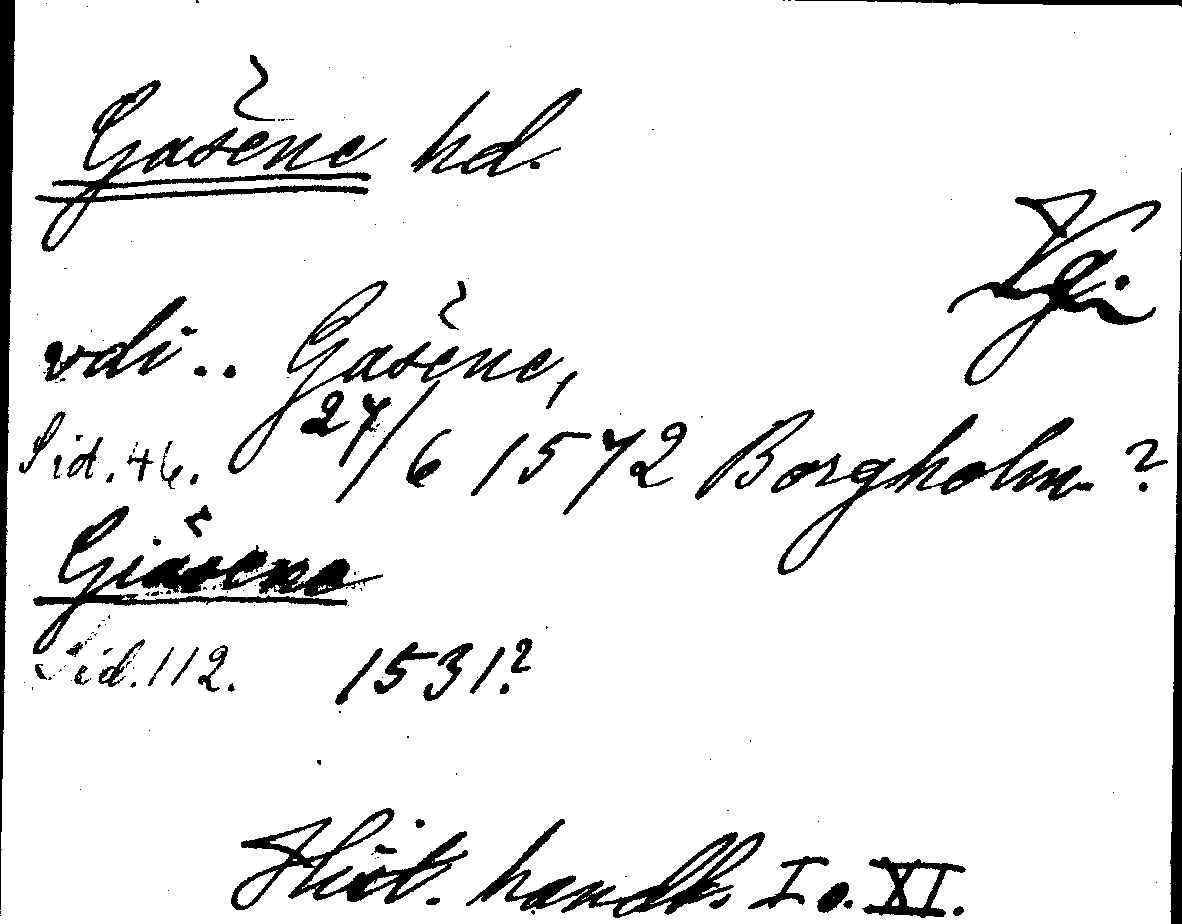 Gasene hd.
Vg.
vdi.. Gasene,
Sid. 46. 27/6 1572 Borgholm ?
Giäsene
Sid. 112. 1531?
Hist. handl. I o. XI.